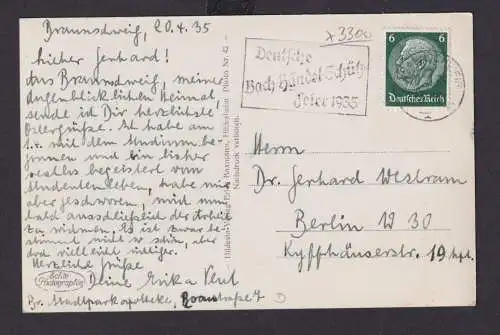 Braunschweig, 20.4.35
Lieber Gerhard!
Aus Braunschweig, meiner
augenblicklichen Heimat,
sende ich Dir herzlichste
Ostergrüße. Ich habe am
1. mit dem Studium be-
gonnen und bin bisher
restlos begeistert vom
Studentenleben, habe mir
aber geschworen, mich nun
bald ausschließlich der Arbeit
zu widmen. Es ist zwar be-
stimmt nicht so schön, aber
doch viel leicht nötiger.
Herzliche Grüße
Deine Erika
Br. Stadtparkapotheke, 7
Echte
Photographie
Nachdruck verboten.
x 3300
Deutsche
Bach Händel Schütz
Feier 1935
6 6
Deutsches Reich
Herrn
Dr. Gerhard Westram
Berlin W 30
Kyffhäuserstr. 19 hpt.